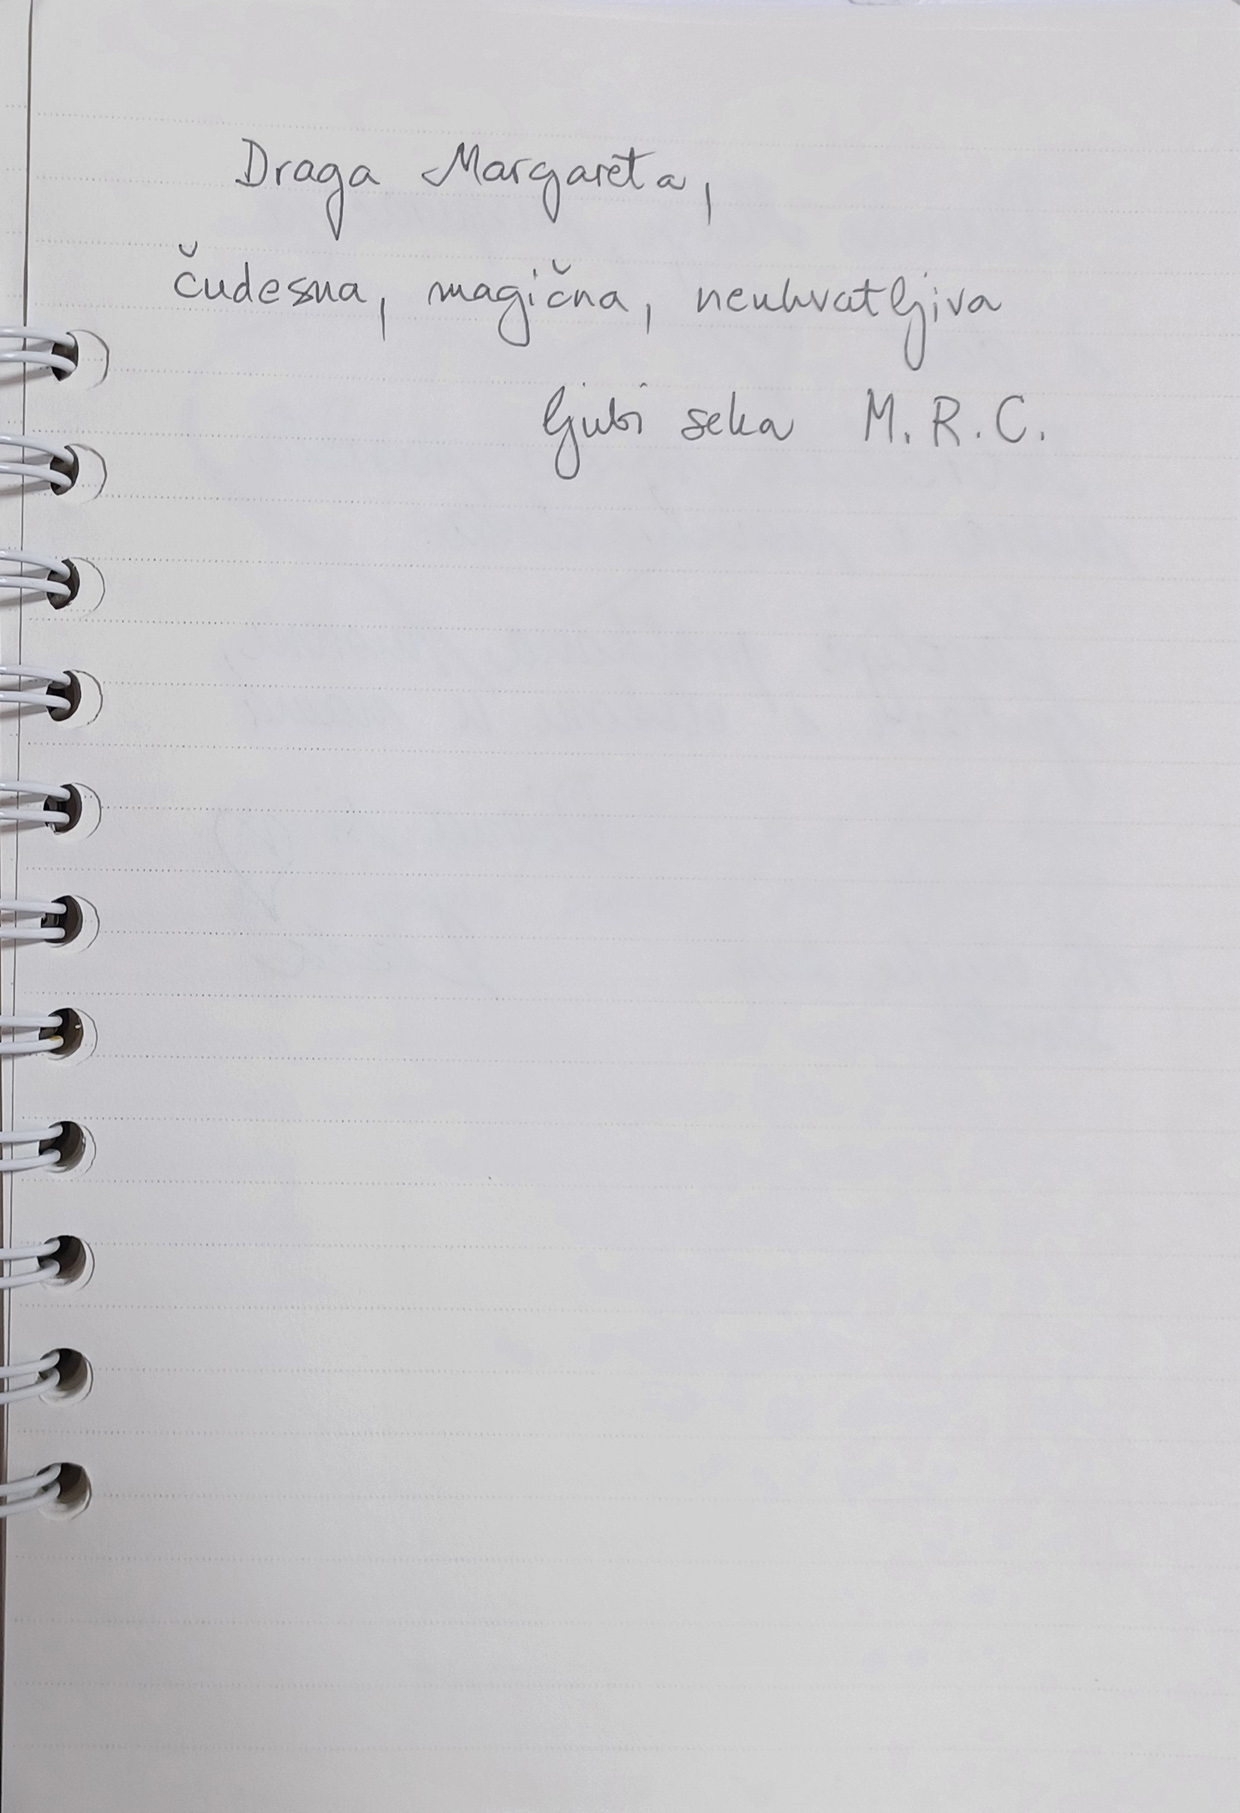 Draga Margareta,
čudesna, magična, neuhvatljiva
ljubi seka M.R.C.